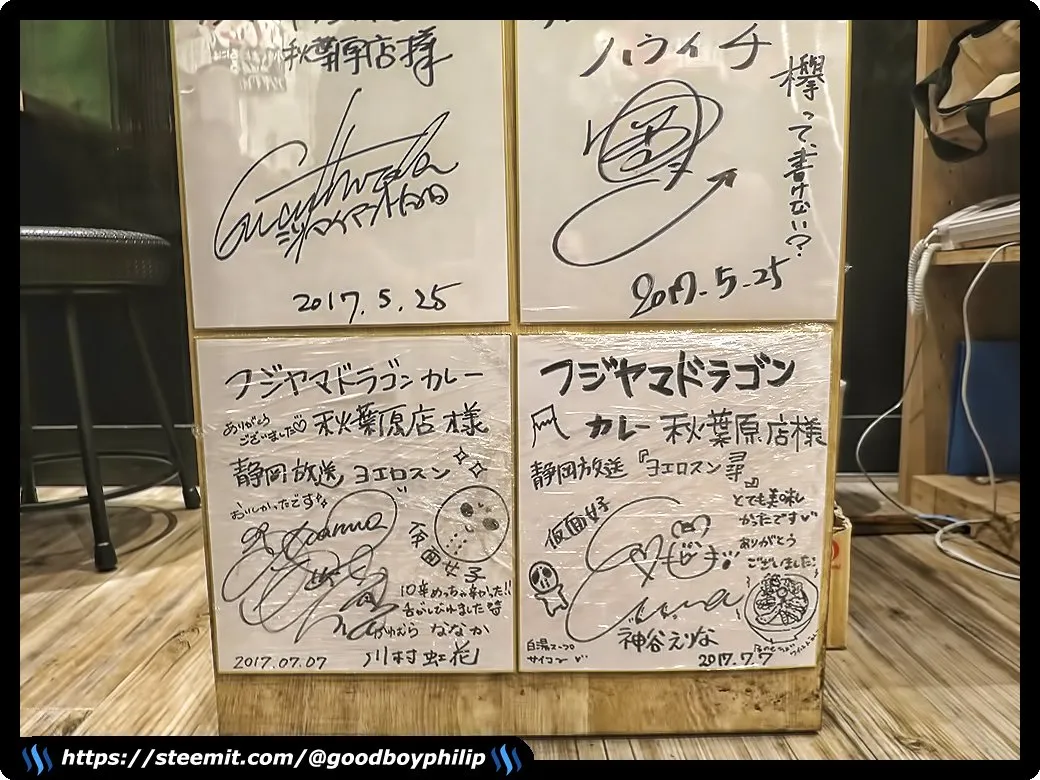 秋葉原店様
ジャイアント白田
2017.5.25
ハライチ
欅って、書けない?
2017.5.25
フジヤマドラゴンカレー
ありがとう
ございました♡
秋葉原店様
静岡放送 ヨエロスン
おいしかったです
仮面女子
10辛めっちゃ辛かった!!
舌がしびれました
かわむら ななか
川村虹花
2017.07.07
フジヤマドラゴン
カレー 秋葉原店様
静岡放送『ヨエロスン尋』
仮面女子
とても美味し
かったです
ありがとう
ございました
神谷えりな
白湯スープ
サイコー
2017.7.7
https://steemit.com/@goodboyphilip